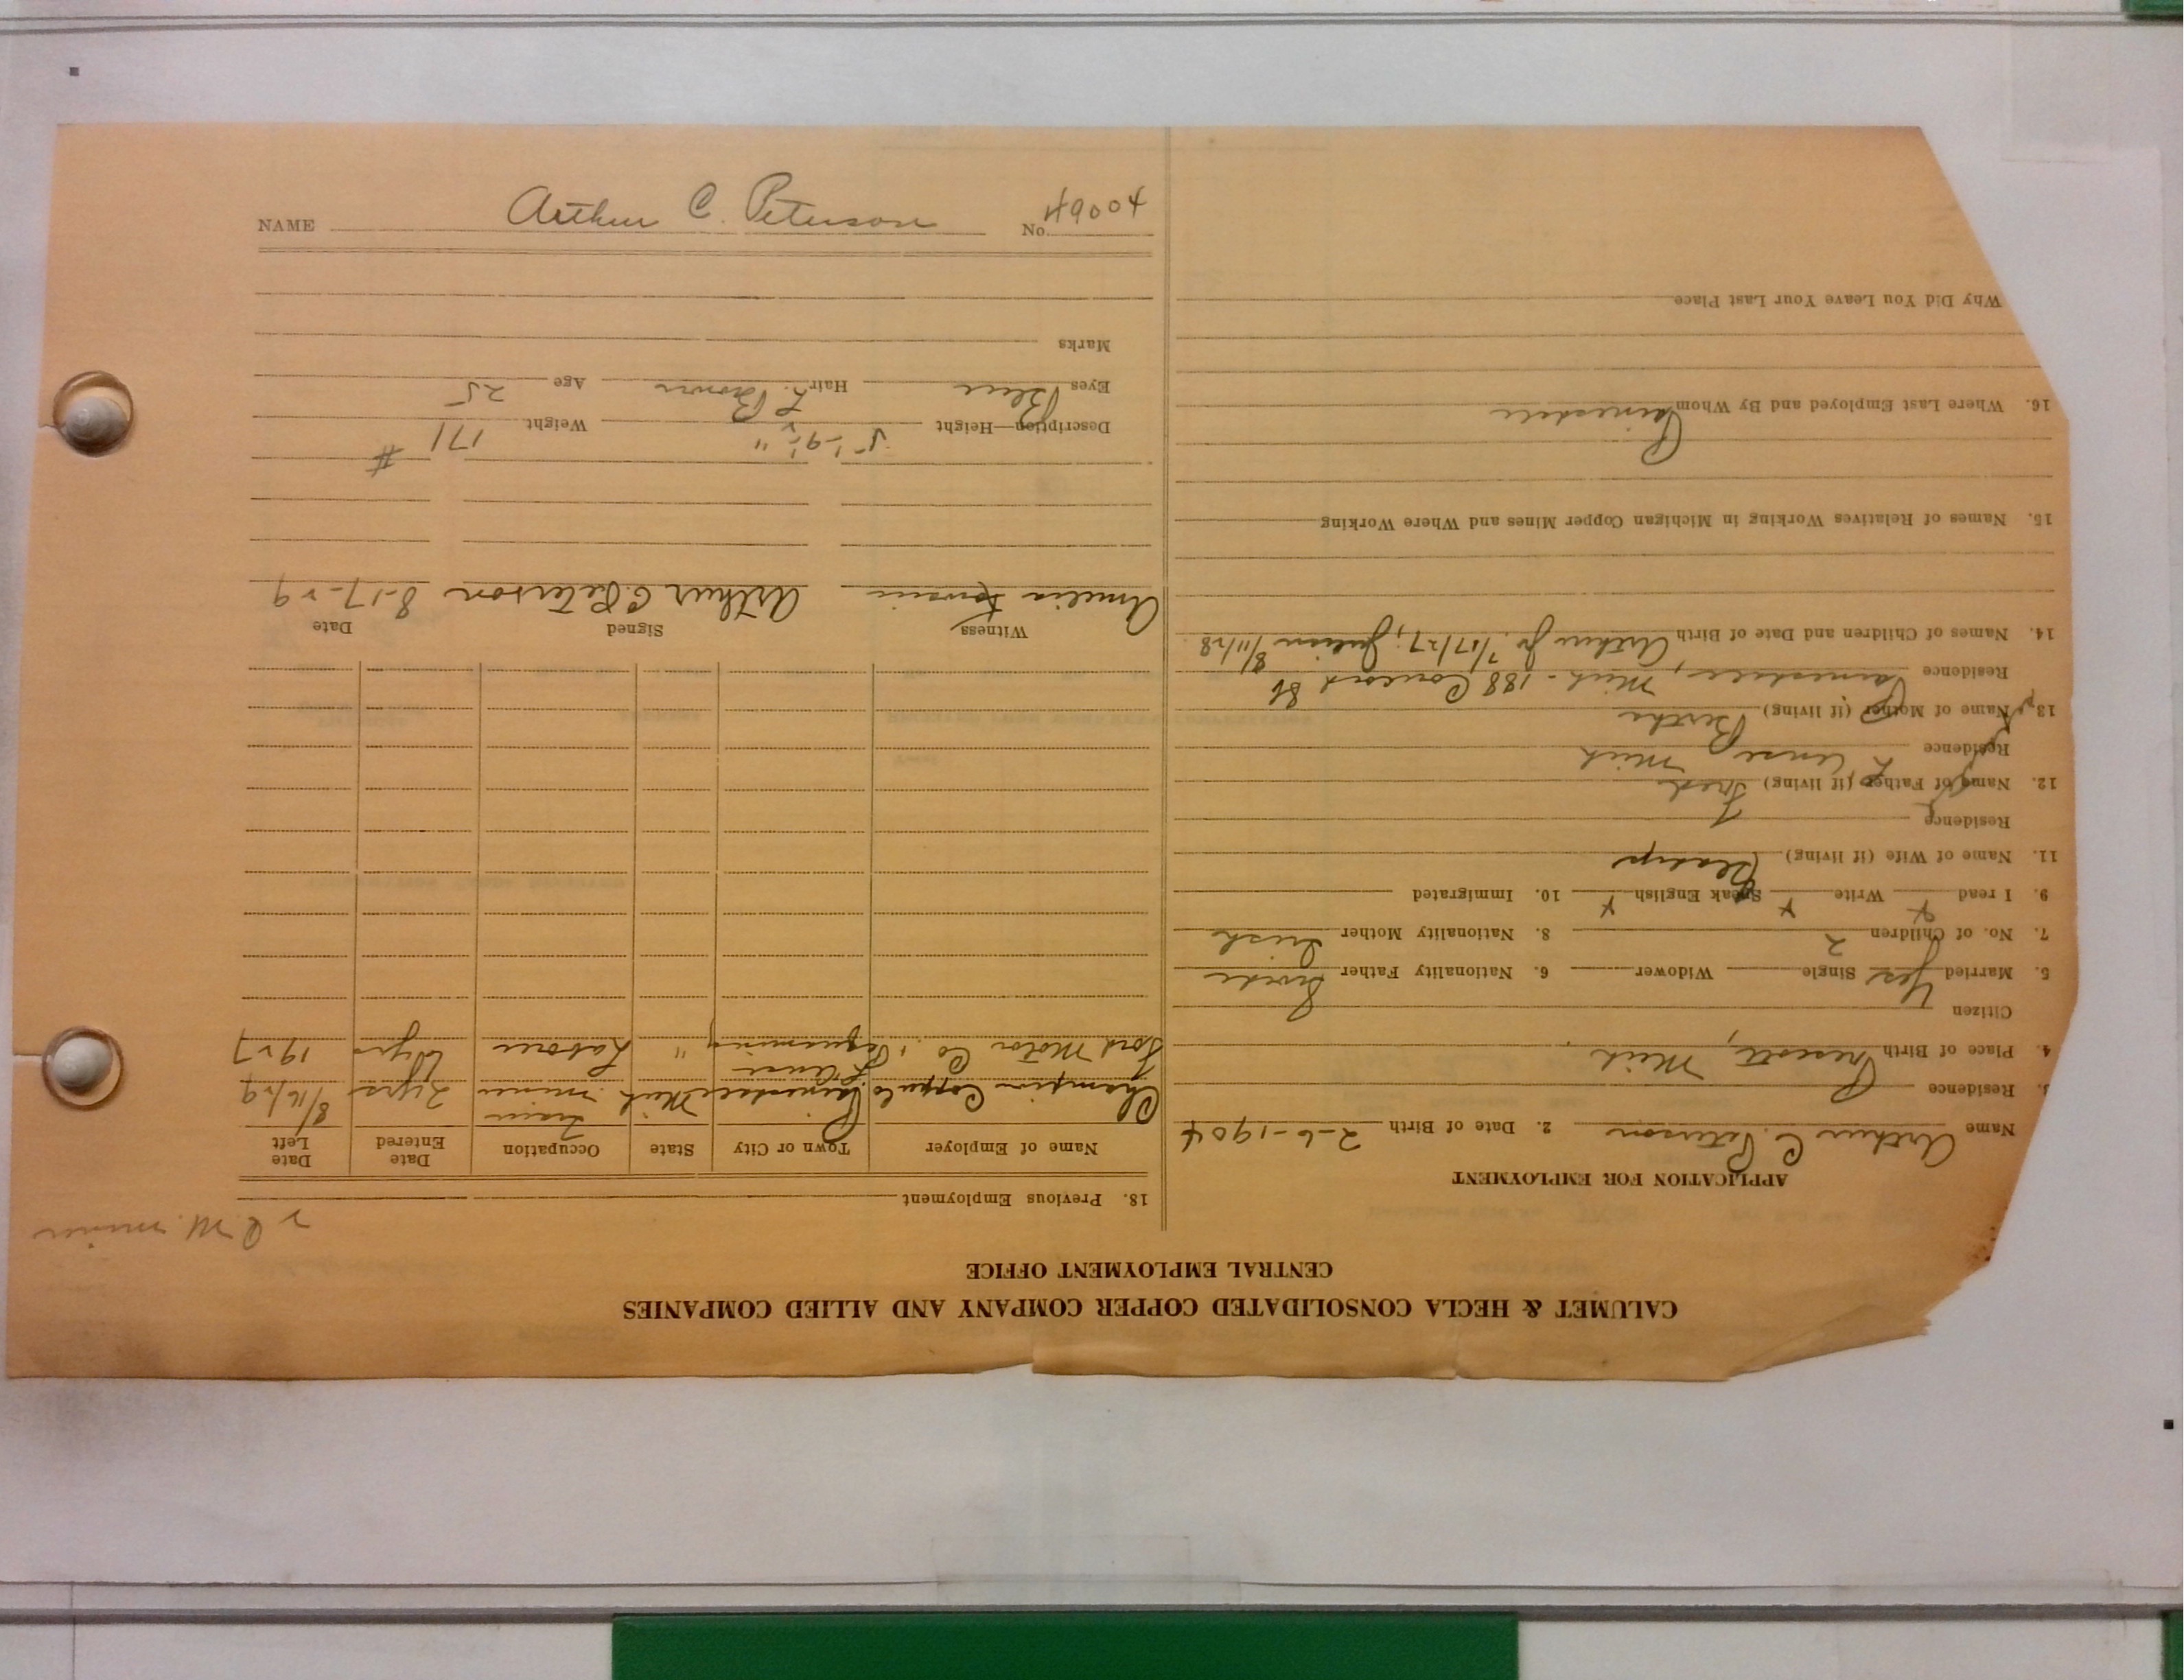 CALUMET & HECLA CONSOLIDATED COPPER COMPANY AND ALLIED COMPANIES
CENTRAL EMPLOYMENT OFFICE
APPLICATION FOR EMPLOYMENT
Name Arthur C. Peterson 2. Date of Birth 2-6-1904
3. Residence
4. Place of Birth Prescott, Mich.
Citizen
5. Married Yes Single Widower 6. Nationality Father Swede
7. No. of Children 2 8. Nationality Mother Irish
9. I read x Write x Speak English x 10. Immigrated
11. Name of Wife (if living) Gladys
Residence
12. Name of Father (if living) Fred
Residence L'Anse Mich
13. Name of Mother (if living) Bertha
Residence Painesdale, Mich - 188 Concord St
14. Names of Children and Date of Birth Arthur Jr. 7/17/27; Julian 8/11/28
15. Names of Relatives Working in Michigan Copper Mines and Where Working
16. Where Last Employed and By Whom Painesdale
Why Did You Leave Your Last Place
C. M. miner
18. Previous Employment
Name of Employer Town or City State Occupation Date Entered Date Left
Champion Copper Co Painesdale Mich miner 2 yrs 8/16/29
Ford Motor Co. L'Anse Pequaming " Laborer yrs 1927
Witness Signed Date
Amelia Arthur C. Peterson 8-17-29
Description—Height 5'-9½" Weight 171 #
Eyes Blue Hair L. Brown Age 25
Marks
NAME Arthur C. Peterson No. 49004